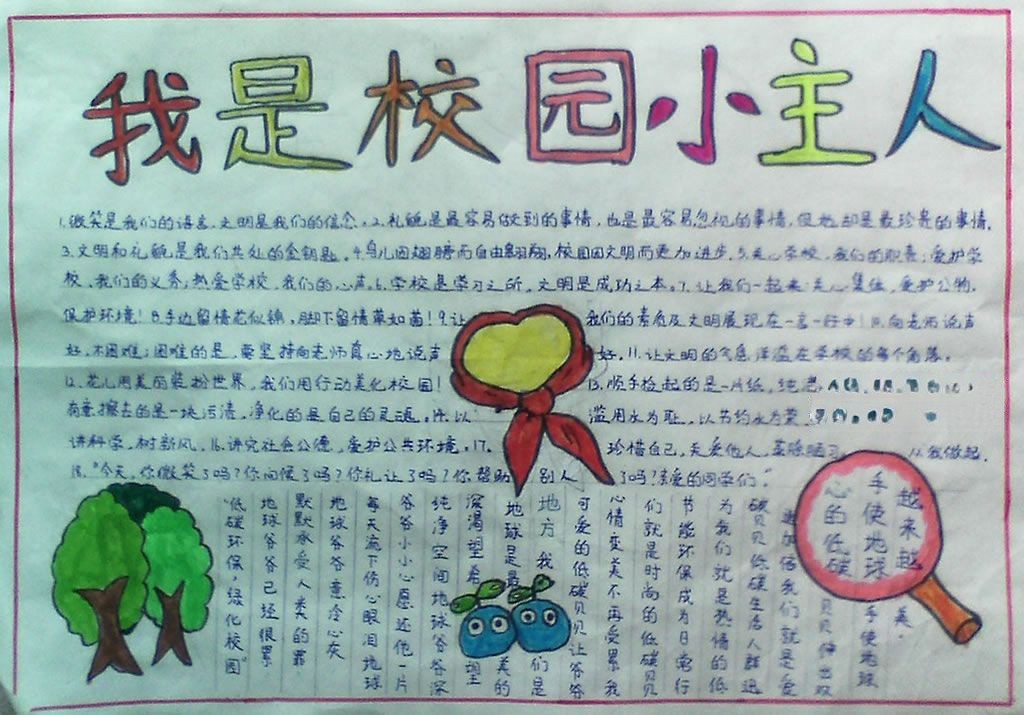 我是校园小主人
1.微笑是我们的语言，文明是我们的信念。2.礼貌是最容易做到的事情，也是最容易忽视的事情，但她却是最珍贵的事情。
3.文明和礼貌是我们共处的金钥匙。4.鸟儿因翅膀而自由翱翔，校园因文明而更加进步。5.关心学校，我们的职责；爱护学
校，我们的义务；热爱学校，我们的心声。6.学校是学习之所，文明是成功之本。7.让我们一起来：关心集体，爱护公物，
保护环境！8.手边留情花似锦，脚下留情草如茵！9.让我们的素质及文明展现在一言一行中！10.向老师说声
好，不困难；困难的是，要坚持向老师真心地说声好。11.让文明的气息洋溢在学校的每个角落。
12.花儿用美丽装扮世界，我们用行动美化校园！13.顺手捡起的是一片纸，纯洁
有意擦去的是一块污渍，净化的是自己的灵魂。14.以滥用水为耻，以节约水为荣
讲科学，树新风。16.讲究社会公德，爱护公共环境。17.珍惜自己，关爱他人，革除陋习，从我做起。
18."今天，你微笑了吗？你问候了吗？你礼让了吗？你帮助别人了吗？亲爱的同学们。"
越来越
手使地球
心的低碳
美。
手使地球
贝贝伸出双
更加信我们就是爱
碳贝贝低碳生活人群迅
为我们就是热情的低
节能环保成为日常行
们就是时尚的低碳贝贝
心情变美不再受累我
可爱的低碳贝贝让爷爷
地方我们是
地球是最美的
深渴望希望
纯净空间地球爷爷深
爷爷小小心愿还他一片
每天流下伤心眼泪地球
地球爷爷意冷心灰
默默承受人类的罪
地球爷爷已经很累
"低碳环保，绿化校园"